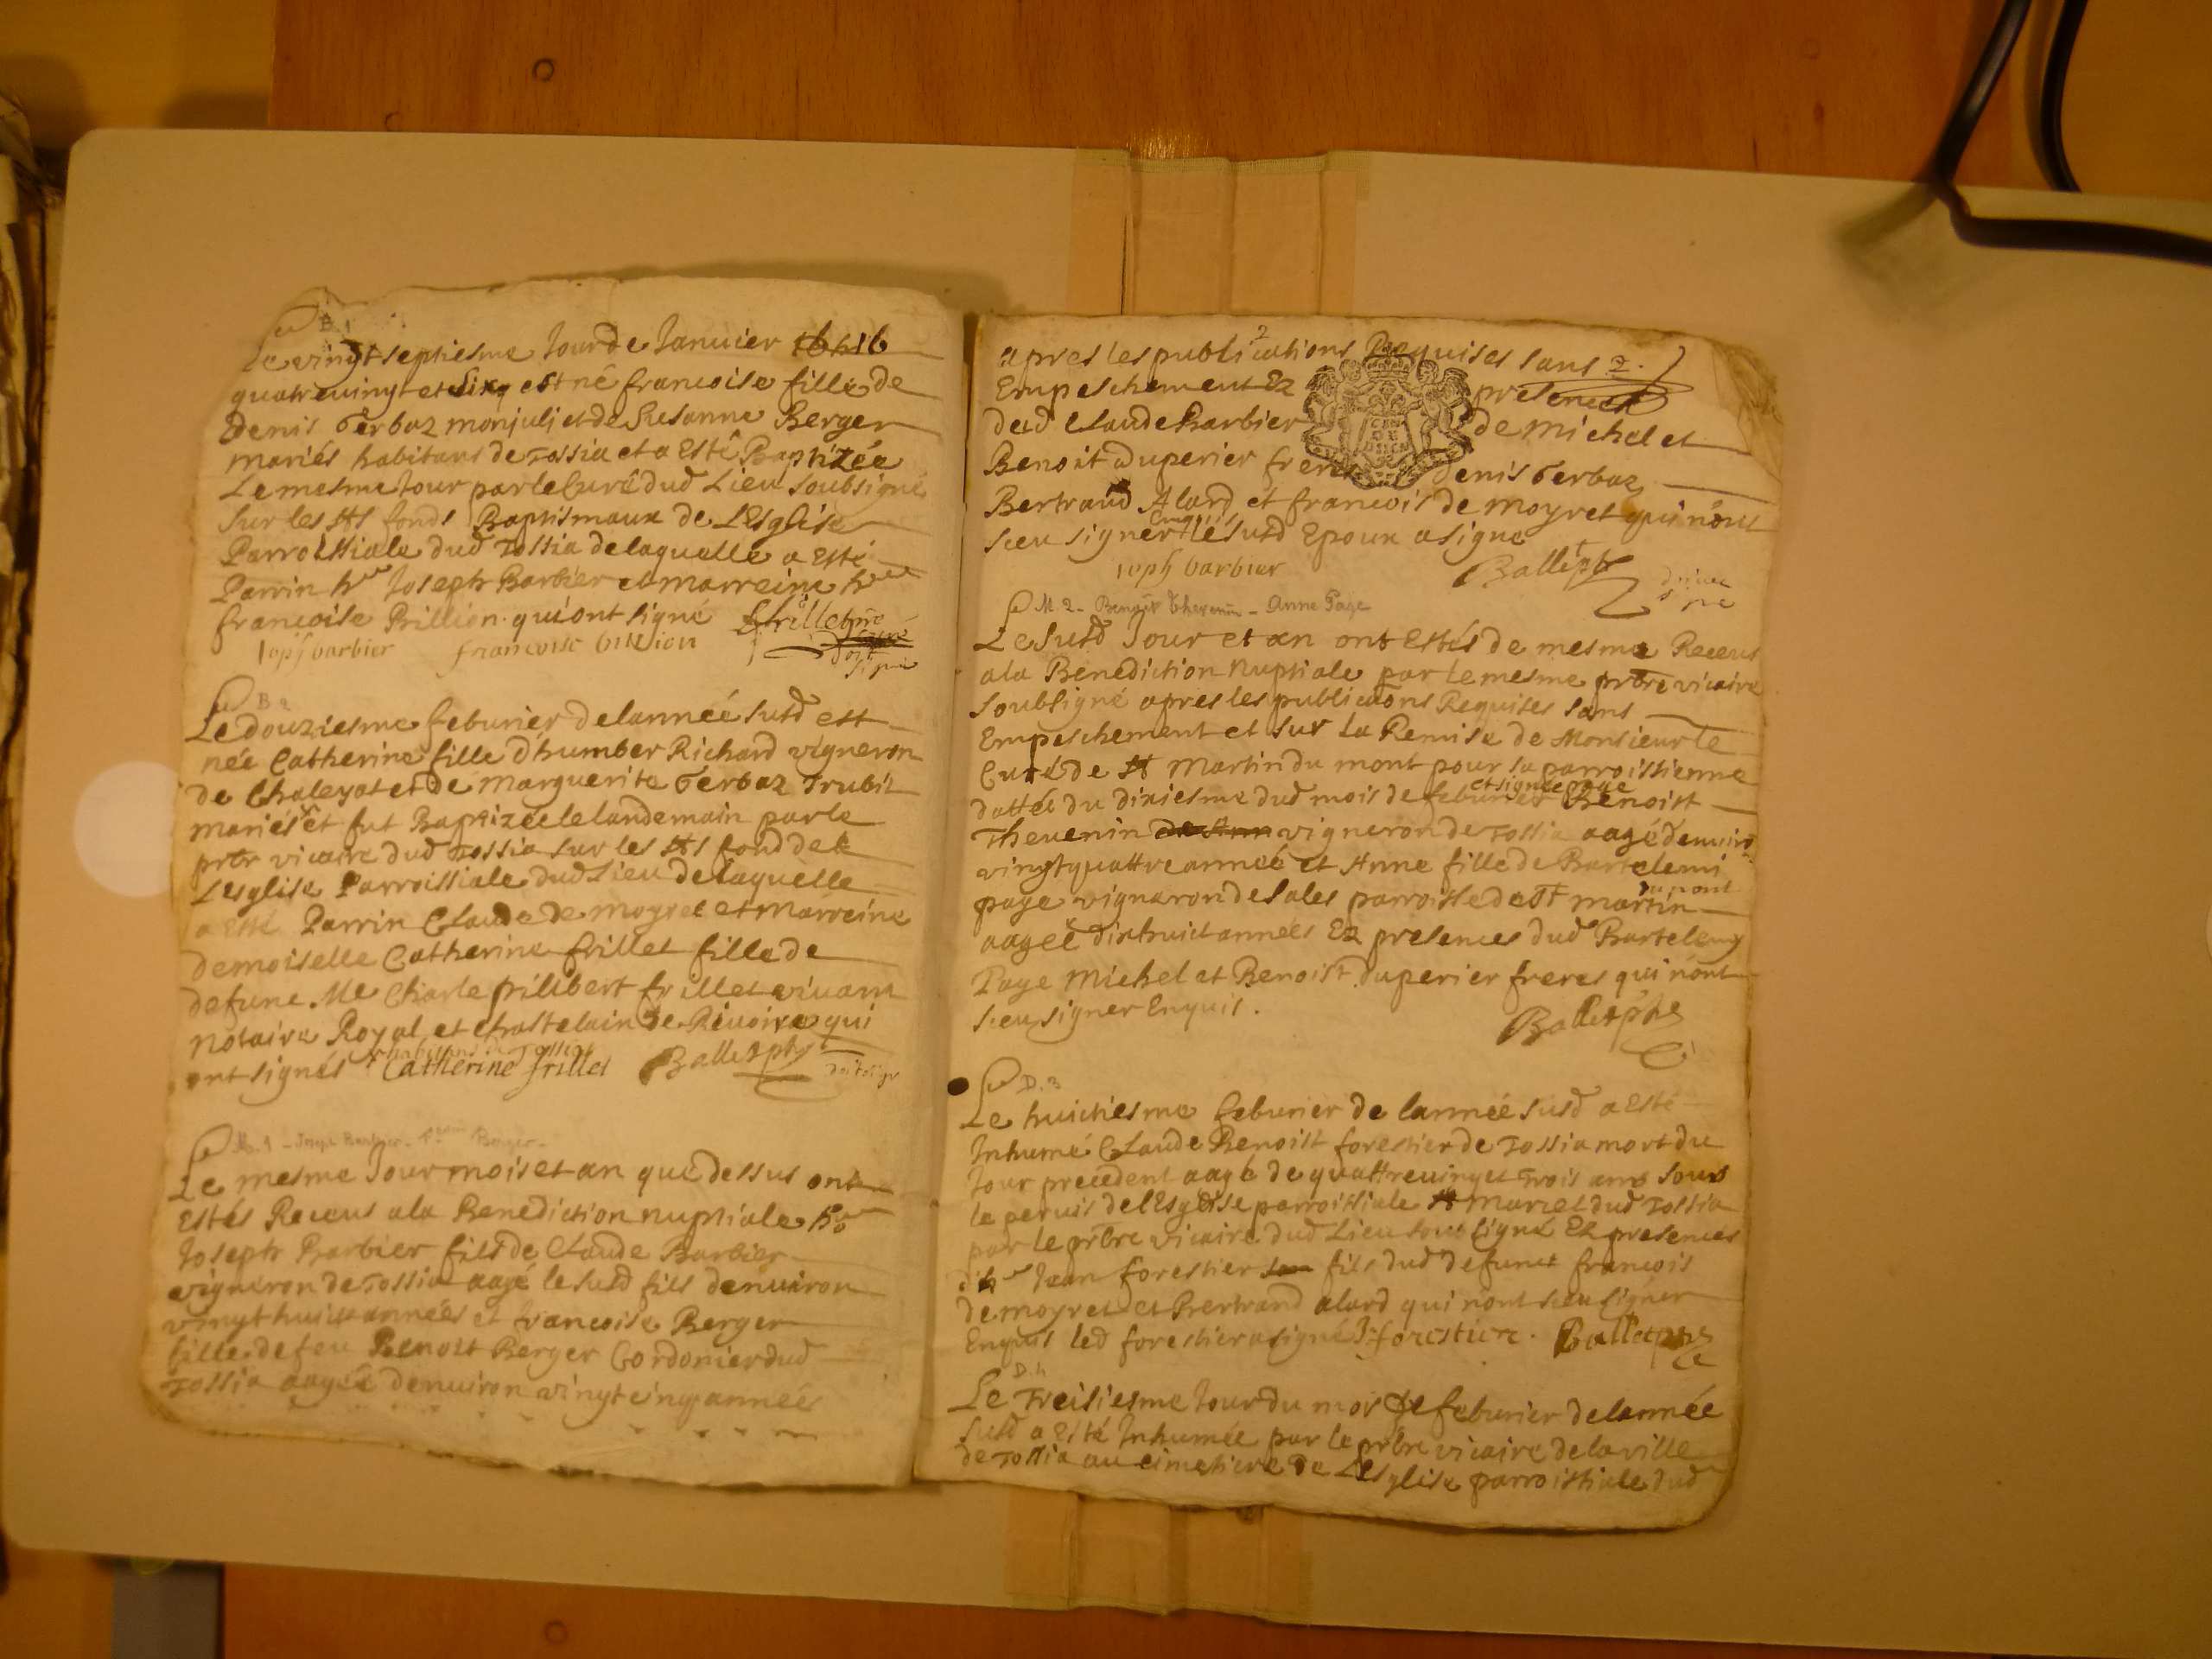 B.1
Le vingt septiesme Jour de Januier
quatreuingt et sixq est né francoise fille de
denis Gerbaz monjuli et de Susanne Berger
mariés habitans de Tossia et a Esté Baptizée
Le mesme Jour par le Curé dud Lieu soubsigné
sur les Sts fonds Baptismaux de L'Esglise
Parroissiale dud Tossia de laquelle a Esté
Parrin hble Joseph Barbier et marreine hble
francoise Brillion qui ont signé
Joph barbier francoise brillion
B 2
Le douziesme feburier de lannéé susd est
néé Catherine fille d'humber Richard vigneron
de Chaleyat et de marguerite Gerbaz Trubit
mariés et fut Baptizéé le landemain par le
prbr vicaire dud Tossia sur les Sts fond de
L'esglise Parroissiale dud Lieu de laquelle
a Esté Parrin Claude de moyret et Marreine
demoiselle Catherine frillet fille de
defunc Me Charle philibert frillet viuant
Notaire Royal et Chastelain de Riuoire qui
ont signés Catherine frillet Ballet pbr
M. 1 - Barbier - Berger -
Le mesme Jour mois et an que dessus ont
Estés Receus a la Benediction nuptiale hble
Joseph Barbier fils de Claude Barbier
vigneron de Tossia aagé le susd fils denuiron
vingt huict années et francoise Berger
fille de feu Benoist Berger Cordonier dud
Tossia aagéé denuiron vingt cinq annéés
apres les publications Requises sans 2.
Empeschement Ez presences
dud Claude Barbier de michel et
Benoit duperier freres denis Gerbaz
Bertrand Alard et francois de moyret qui n'ont
sceu signer Enquis le susd Epoux a signé
Joph barbier Ballet pbr
M 2 - Benoit Thevenin - Anne Page
Le Susd Jour et an ont Estés de mesme Receus
a la Benediction Nuptiale par le mesme prbre vicaire
soubsigné apres les publications Requises sans
Empeschement et sur La Remise de Monsieur le
Curé de St Martin du mont pour sa parroissienne
dattéé du dixiesme dud mois de feburier et signée page Benoist
Theuenin vigneron de Tossia aagé denuiron
vingt quattre année et Anne fille de Bartelemi
page vigneron de Sales parroisse de St martin du mont
aagéé dixhuict annéés Ez presences dud Bartelemy
Page Michel et Benoist duperier freres qui n'ont
sceu signer Enquis.
Ballet pbr
D. 3
Le huictiesme feburier de lannéé susd a Esté
Inhumé Claude Benoist forestier de Tossia mort du
Jour precedent aagé de quattreuingt et Trois ans sous
le paruis de l'Esglise parroissiale St Marcel dud Tossia
par le prbre vicaire dud Lieu soussigné Ez presences
d'h Jean forestier fils dud defunct francois
de moyret et Bertrand alard qui n'ont sceu signer
Enquis led forestier a signé J forestier. Ballet pbr
D. 4
Le Treisiesme Jour du mois de feburier de lannéé
susd a Esté Inhumée par le prbre vicaire de la ville
de Tossia au cimetiere de L'Esglise parroissiale dud